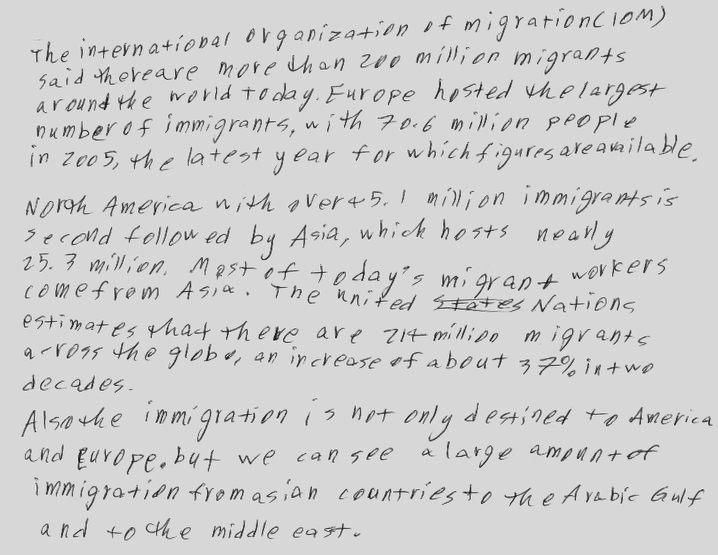 The international organization of migration (IOM)
said there are more than 200 million migrants
around the world today. Europe hosted the largest
number of immigrants, with 70.6 million people
in 2005, the latest year for which figures are available.
North America with over 45.1 million immigrants is
second followed by Asia, which hosts nearly
25.3 million. Most of today's migrant workers
come from Asia. The united states Nations
estimates that there are 214 million migrants
across the globe, an increase of about 37% in two
decades.
Also the immigration is not only destined to America
and Europe. but we can see a large amount of
immigration from asian countries to the Arabic Gulf
and to the middle east.